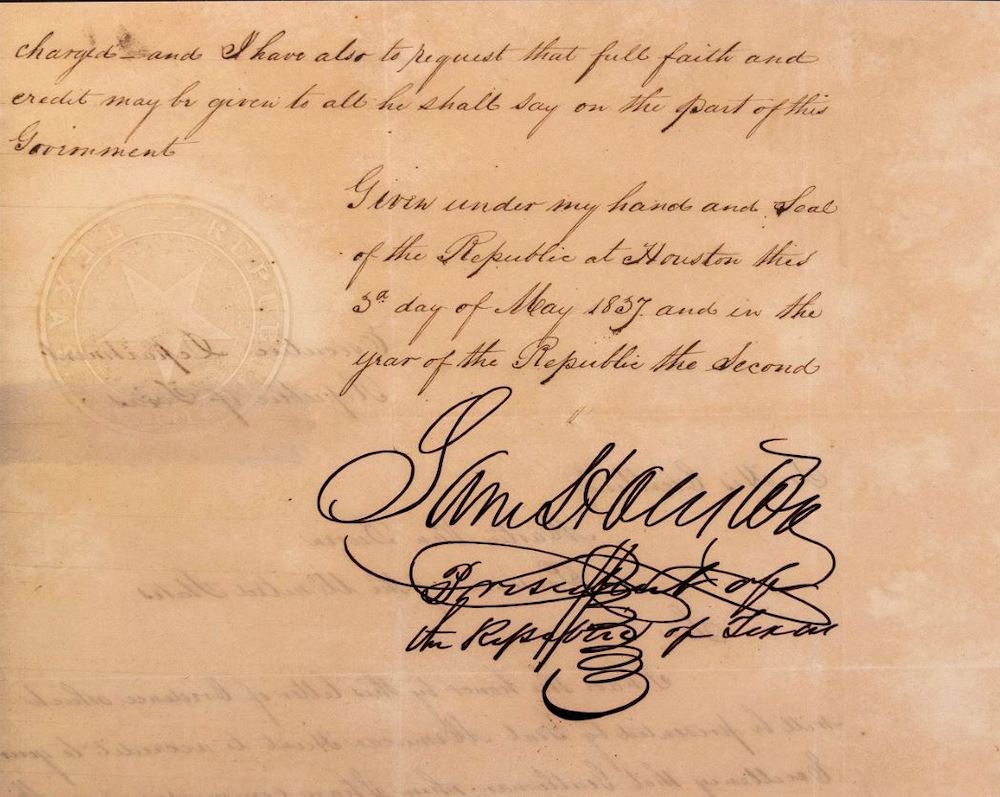 charged - and I have also to request that full faith and
credit may be given to all he shall say on the part of this
Government
Given under my hand and Seal
of the Republic at Houston this
3d. day of May 1837 and in the
year of the Republic the Second
Sam Houston
President of
the Republic of Texas